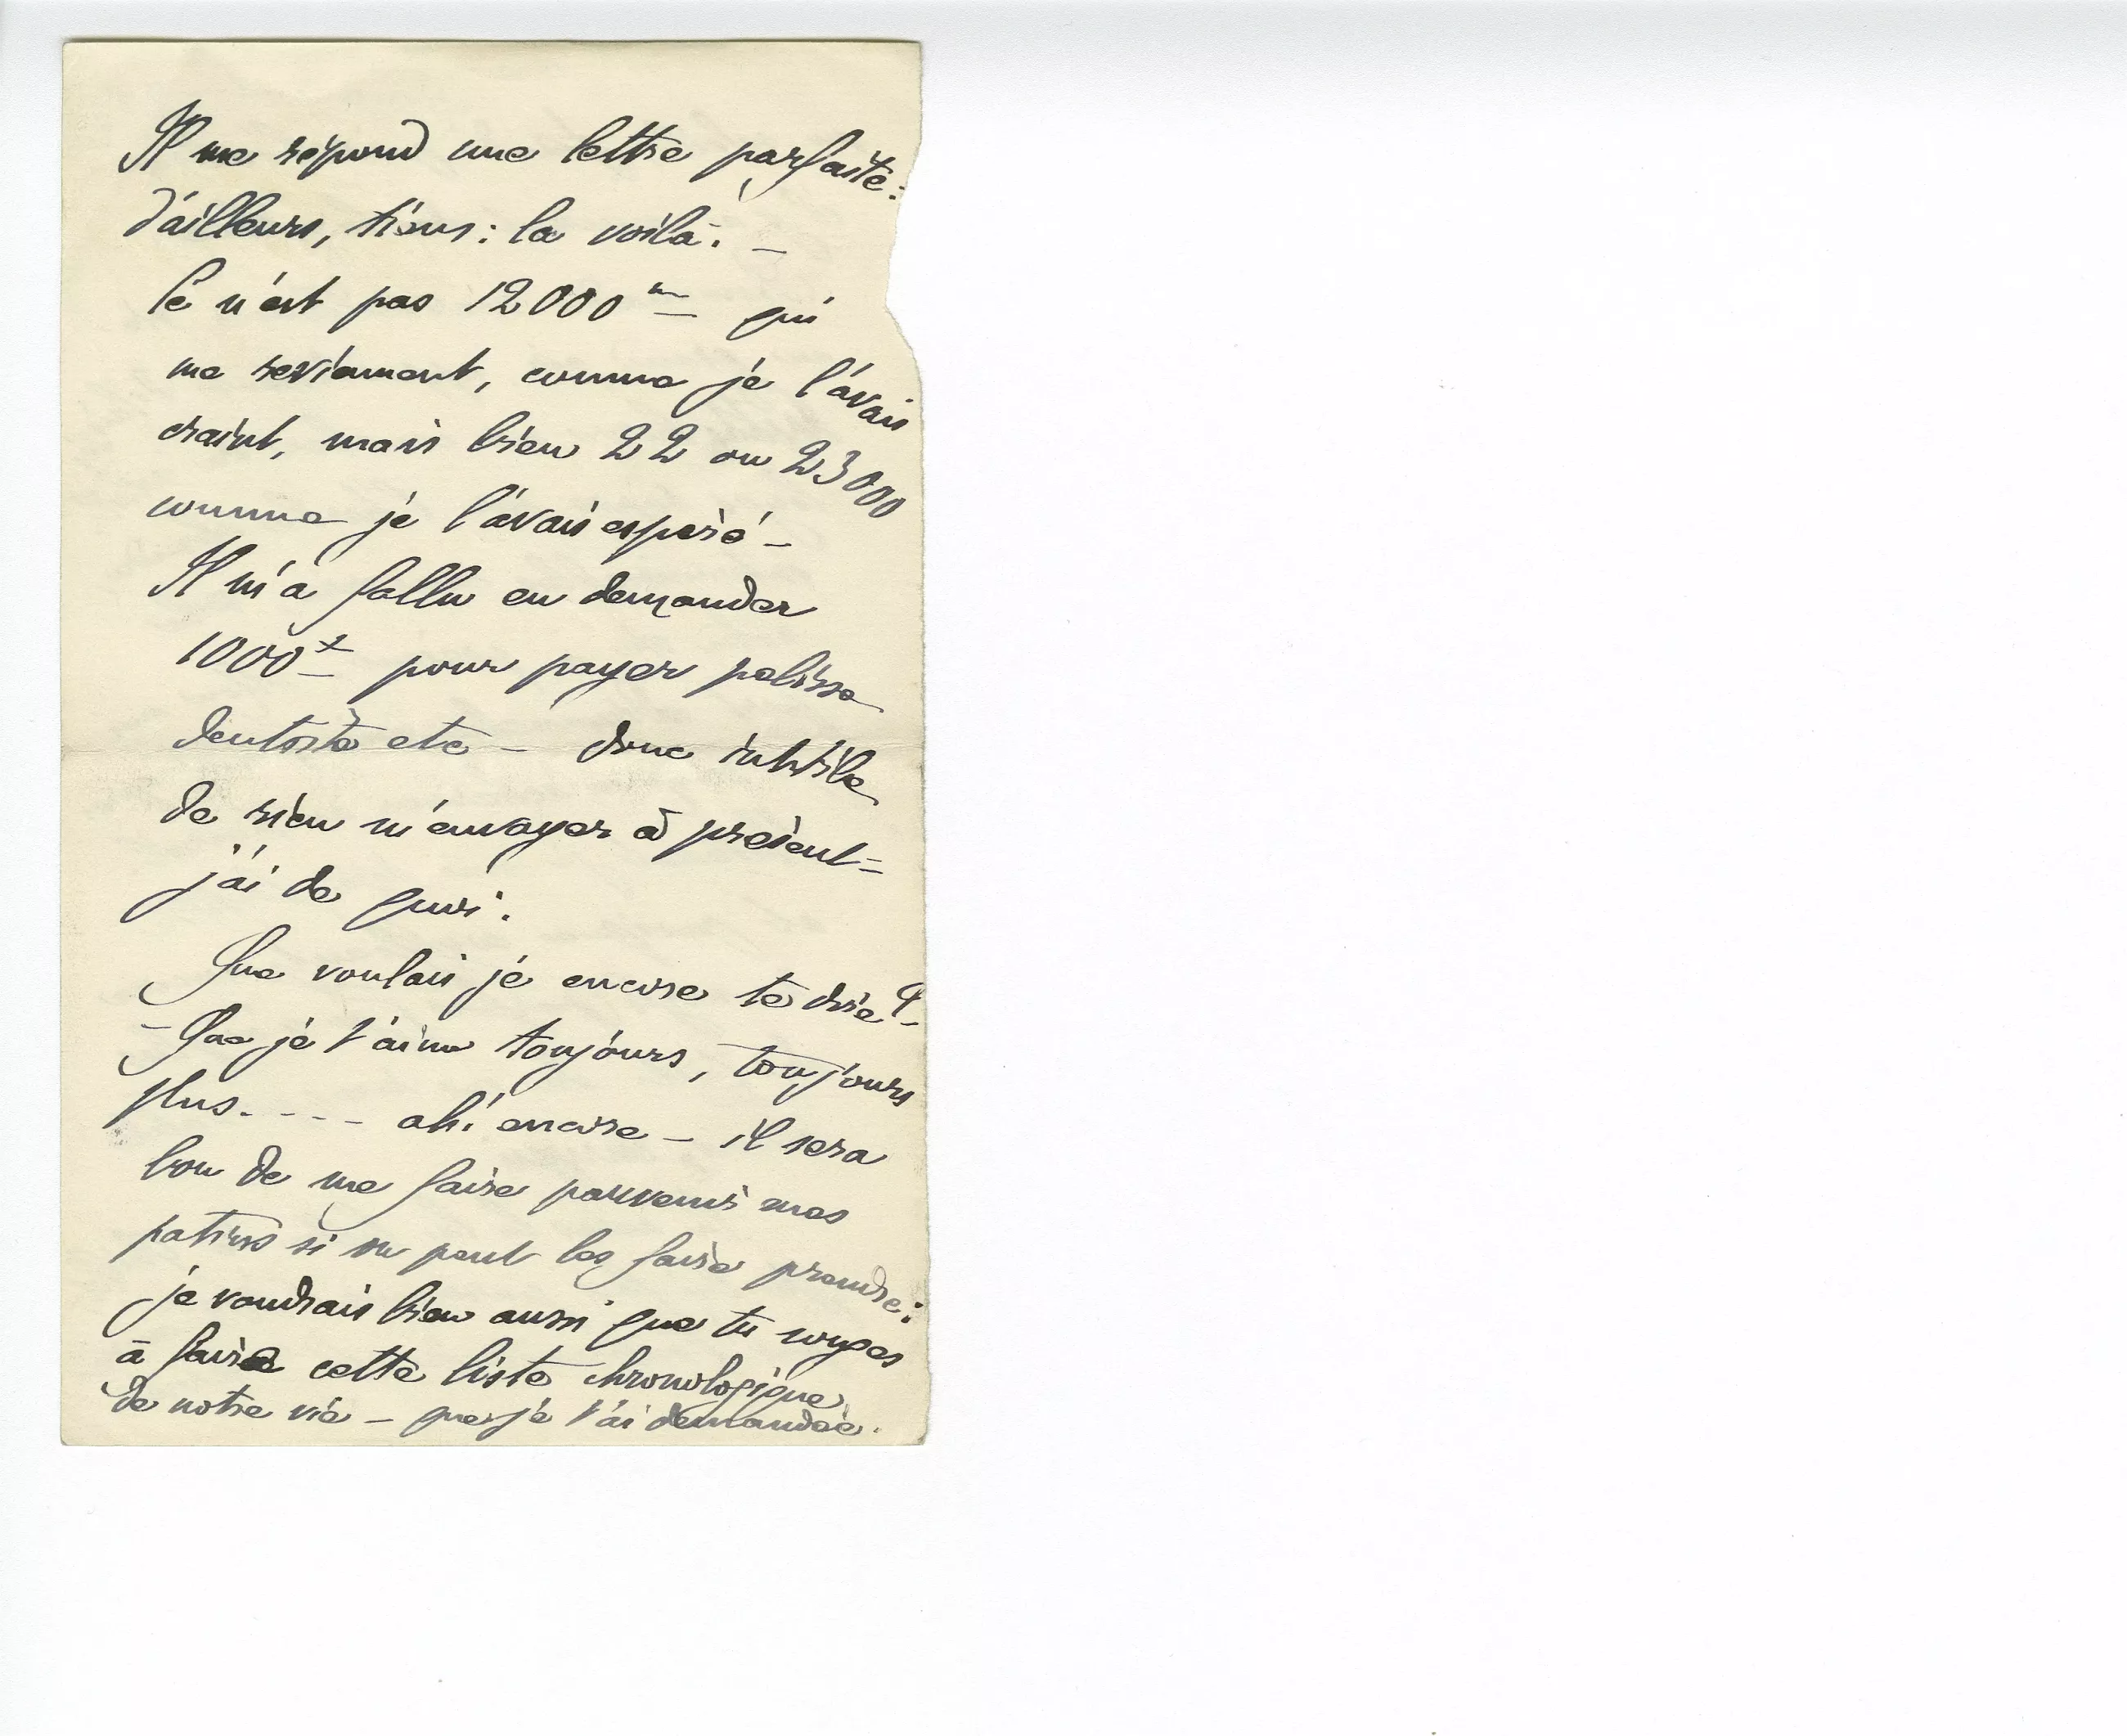 Il me répond une lettre parfaite:
d'ailleurs, tiens: la voilà. —
Ce n'est pas 12000 m qui
me reviennent, comme je l'avais
craint, mais bien 22 ou 23000
comme je l'avais espéré —
Il m'a fallu en demander
1000 f pour payer pelisse
dentiste etc — donc inutile
de rien m'envoyer à présent —
j'ai de quoi.
Que voulais je encore te dire? —
— Que je t'aime toujours, toujours
plus. - - - ah! encore — il sera
bon de me faire parvenir mes
patins si on peut les faire prendre:
je voudrais bien aussi que tu songes
à faire cette liste chronologique
de notre vie — que je t'ai demandée.